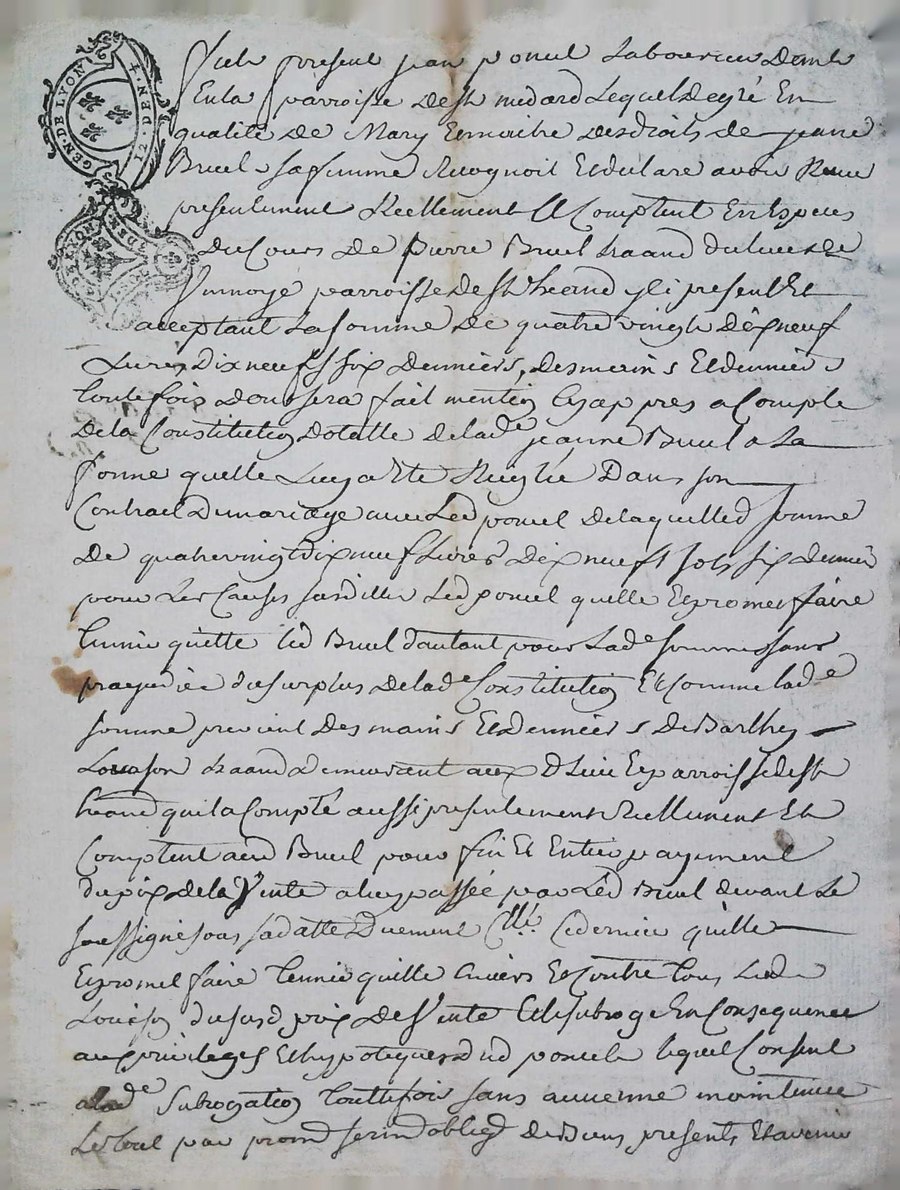 GEN. DE LYON
12. DEN. 4.
fut present jean poncet Laboureur demt
En la parroisse de st medard Lequel de gré En
qualité de Mary Et maitre des droits de jeane
Bruel sa femme Recognoit Et declare avoir Receu
presentement Reellement Et Comptent En Especes
du Cours de pierre Bruel du lieu de
parroisse de st heand yci present Et
acceptant La somme de quatre vingt dix neuf
Livres dix neuf s six denniers, des mains Et denniers
toutefois dont sera fait mention Cy appres a Compte
de la Constitution dotalle de lade jeanne Bruel a La
forme quelle Luy a Eté Reiglée Dans son
Contract de mariage avec Led poncet de laquelle d somme
De quatre vingt dix neuf Livres dix neuf sols six deniers
pour Les Causes susdittes Led poncet quitte Et promet faire
tenir quitte led Bruel d'autant pour Lade somme sans
prejudice du surplus de lade Constitution Et Comme lade
somme provient des mains Et denniers de Barthy
Louison demeurant aux Et parroisse de st
heand qui la Compté aussi presentement Reellement Et
Comptent aud Bruel pour fin Et Entier payement
du prix de la Vente a luy passée par Led Bruel devant Le
soussigné sous sa datte Duement Cllé Ce dernier quitte
Et promet faire tenir quitte Envers Et Contre tous Led
Louison du susd prix de Vente Et le subroge En Consequence
aux privileges Et hypoteques dud poncet lequel Consent
a lade Subrogation touttefois sans aucune maintenue
Le tout par promd sermd obligd de Biens presents Et avenir